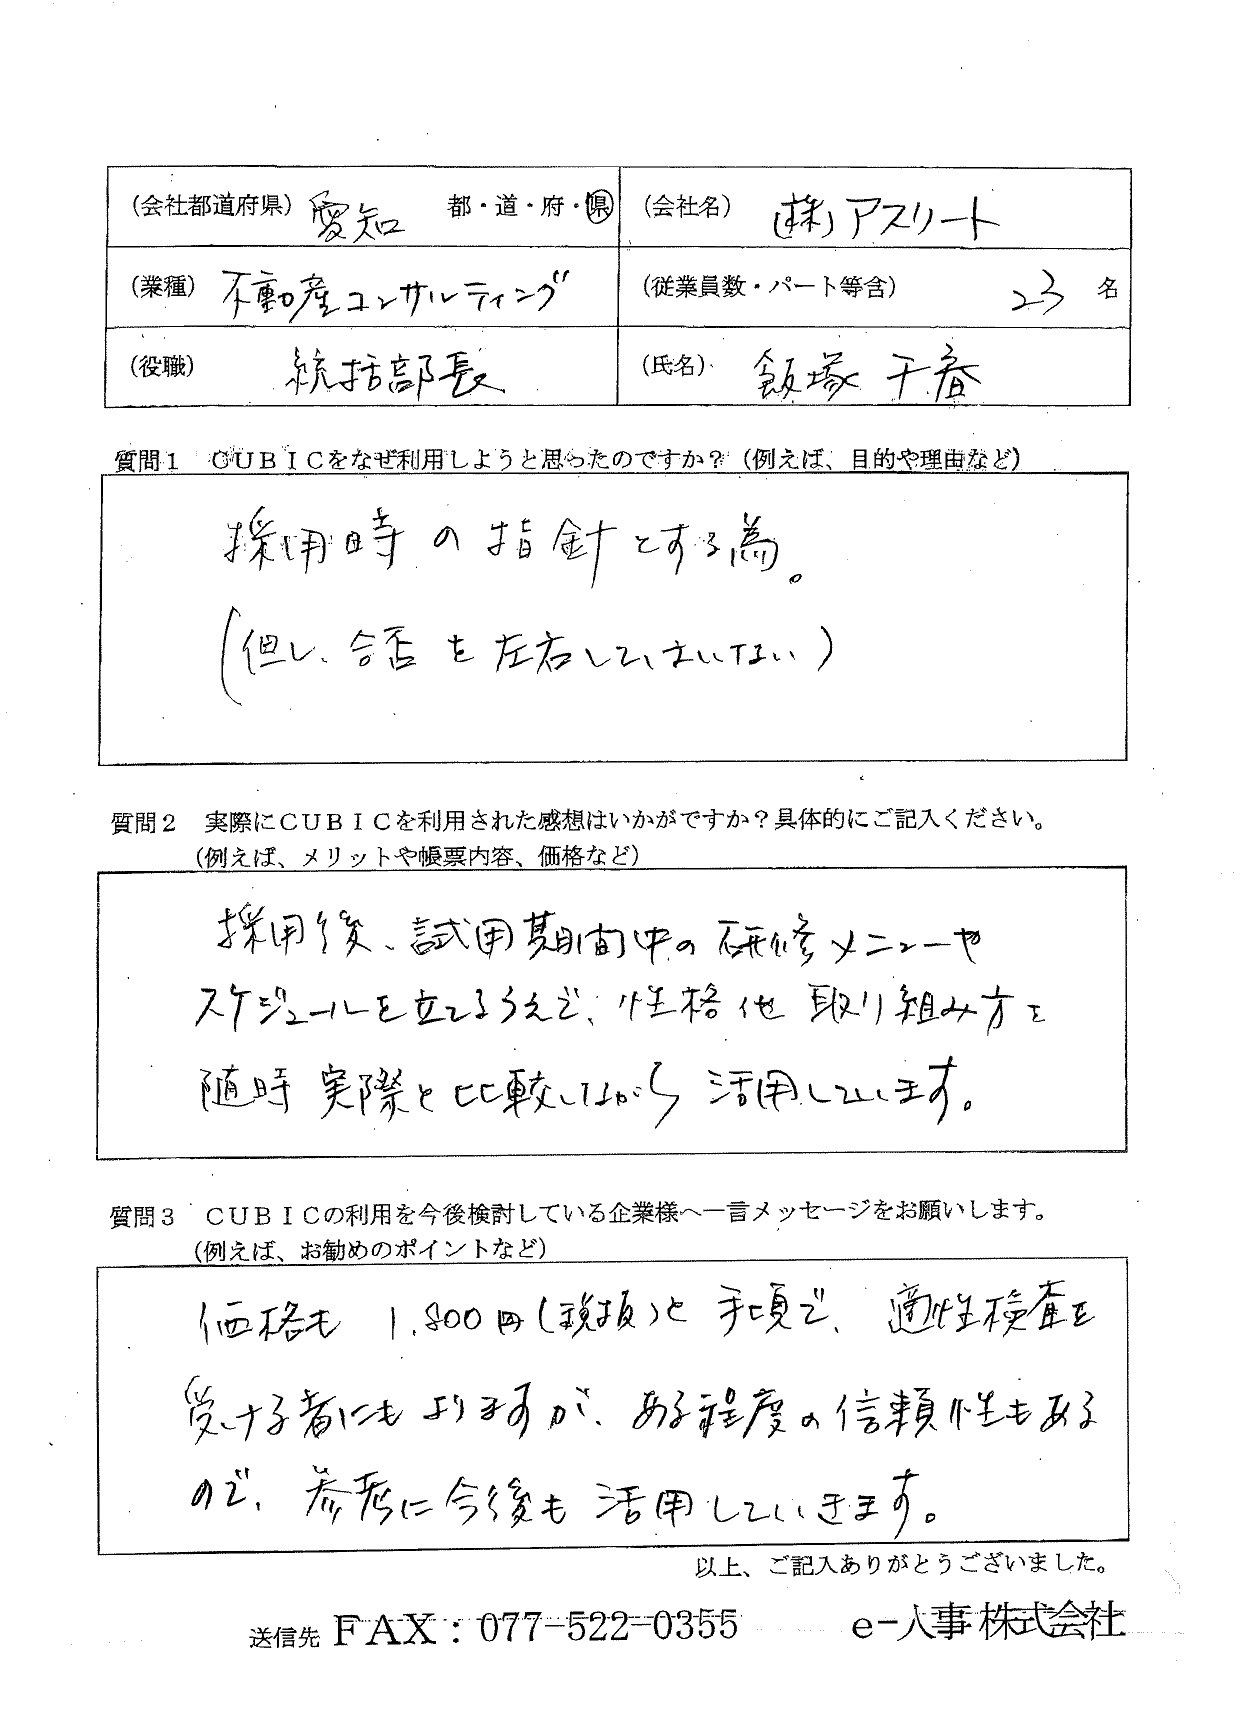 (会社都道府県) 愛知 都・道・府・県 (会社名) (株)アスリート
(業種) 不動産コンサルティング (従業員数・パート等含) 23 名
(役職) 統括部長 (氏名) 飯塚 千春
質問1 CUBICをなぜ利用しようと思ったのですか?(例えば、目的や理由など)
採用時の指針とする為。
(但し、合否を左右してはいない)
質問2 実際にCUBICを利用された感想はいかがですか?具体的にご記入ください。
(例えば、メリットや帳票内容、価格など)
採用後、試用期間中の研修メニューや
スケジュールを立てるうえで、性格他 取り組み方を
随時 実際と比較しながら 活用しています。
質問3 CUBICの利用を今後検討している企業様へ一言メッセージをお願いします。
(例えば、お勧めのポイントなど)
価格も 1,800円(税抜)と 手頃で、適性検査を
受ける者にもよりますが、ある程度の信頼性もある
ので、参考に今後も 活用していきます。
以上、ご記入ありがとうございました。
送信先 FAX:077-522-0355 e-人事株式会社